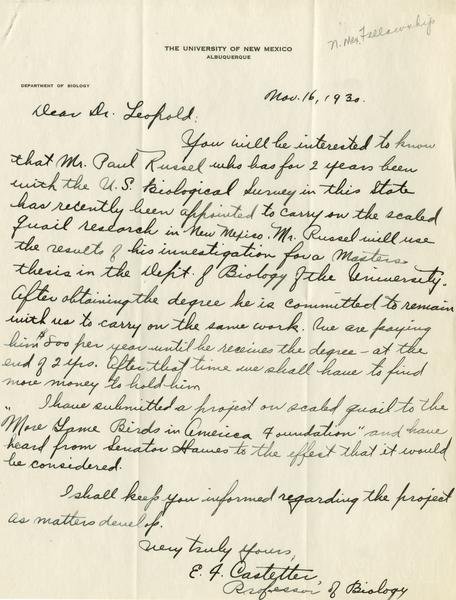 N. Mex. Fellowship
THE UNIVERSITY OF NEW MEXICO
ALBUQUERQUE
DEPARTMENT OF BIOLOGY
Nov. 16, 1930.
Dear Dr. Leopold:
You will be interested to know
that Mr. Paul Russel who has for 2 years been
with the U.S. Biological Survey in this State
has recently been appointed to carry on the scaled
quail research in New Mexico. Mr. Russel will use
the results of his investigation for a Masters
thesis in the Dept. of Biology of the University.
After obtaining the degree he is committed to remain
with us to carry on the same work. We are paying
him $800 per year until he receives the degree - at the
end of 2 yrs. After that time we shall have to find
more money to hold him
I have submitted a project on scaled quail to the
"More Game Birds in America Foundation" and have
heard from Senator Hawes to the effect that it would
be considered.
I shall keep you informed regarding the project
as matters develop.
Very truly yours,
E. F. Castetter,
Professor of Biology